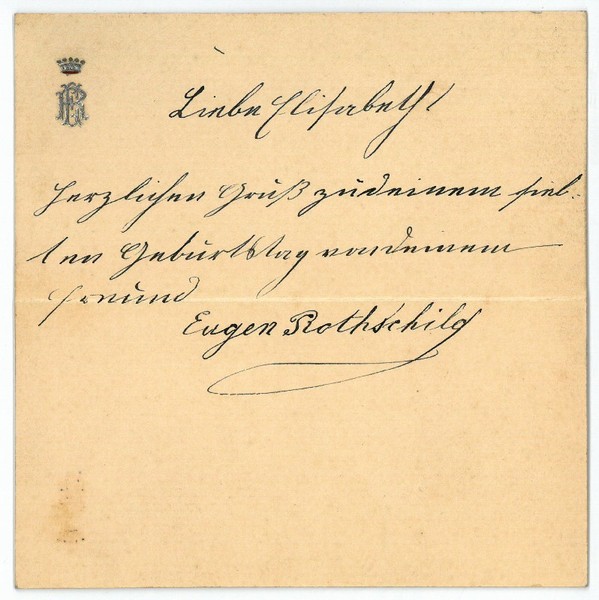 Liebe Elisabeth!
herzlichen Gruß zu deinem sieb:
ten Geburtstag von deinem
Freund
Eugen Rothschild